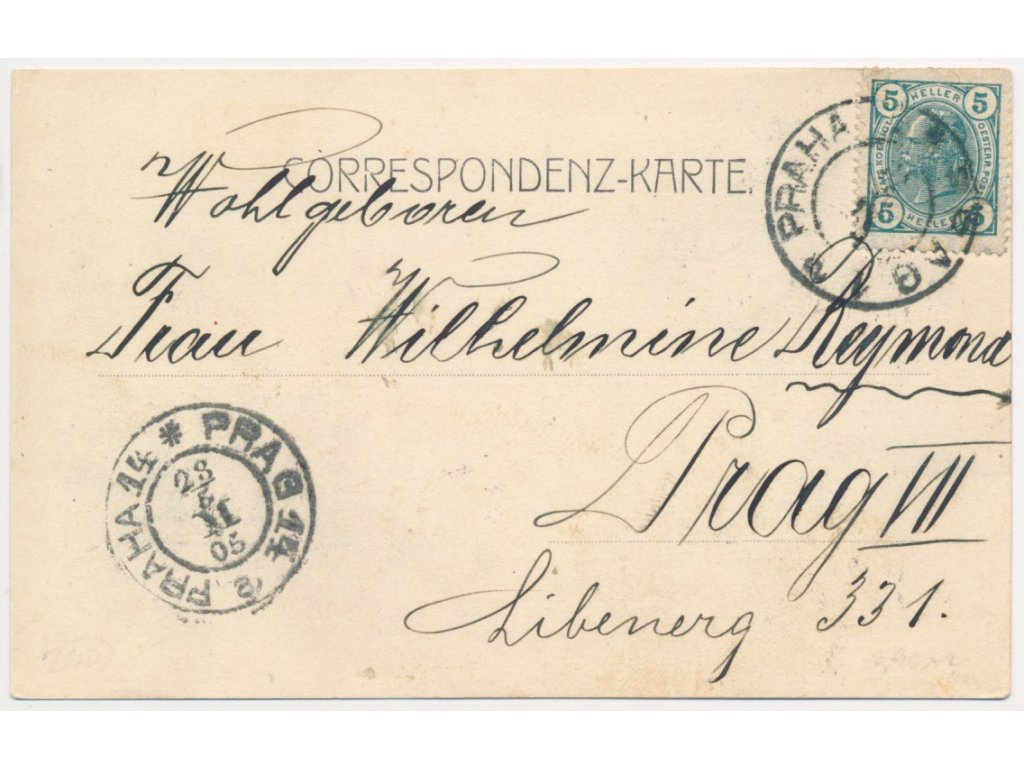 CORRESPONDENZ-KARTE.
Wohlgeboren
Frau Wilhelmine Reymond
Prag VIII
Libenerg 331.
5 HELLER 5
5 HELLER 5
PRAHA
PRAG 14 * PRAHA 14
23
XI
05